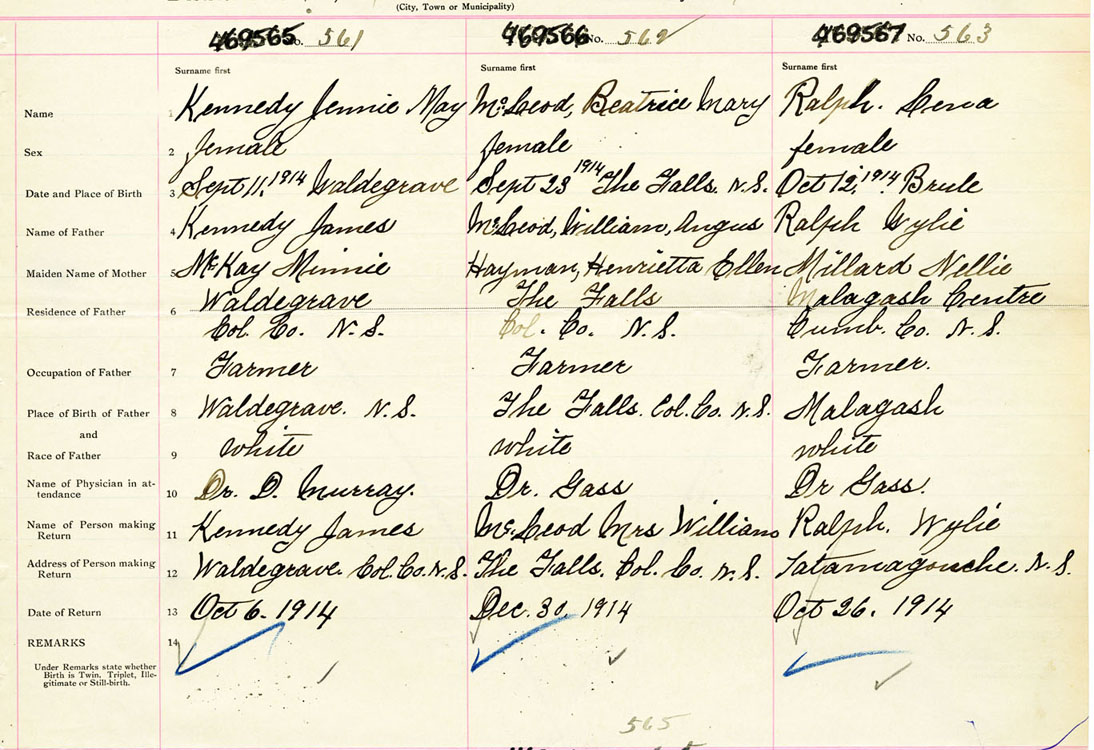 (City, Town or Municipality)
469565 No. 561 469566 No. 562 469567 No. 563
Surname first Surname first Surname first
Name 1 Kennedy Jennie May McLeod, Beatrice Mary Ralph. Lena
Sex 2 female female female
Date and Place of Birth 3 Sept 11, 1914 Waldegrave Sept 23 1914 The Falls. N.S. Oct 12, 1914 Brule
Name of Father 4 Kennedy James McLeod, William, Angus Ralph Wylie
Maiden Name of Mother 5 McKay Minnie Hayman, Henrietta Ellen Millard Nellie
Residence of Father 6 Waldegrave The Falls Malagash Centre
Col. Co. N.S. Col. Co. N.S. Cumb. Co. N.S.
Occupation of Father 7 Farmer Farmer Farmer.
Place of Birth of Father 8 Waldegrave. N.S. The Falls. Col. Co. N.S. Malagash
and
Race of Father 9 white white white
Name of Physician in at-
tendance 10 Dr. D. Murray. Dr. Gass Dr Gass.
Name of Person making
Return 11 Kennedy James McLeod Mrs William Ralph. Wylie
Address of Person making
Return 12 Waldegrave. Col. Co. N.S. The Falls. Col. Co. N.S. Tatamagouche. N.S.
Date of Return 13 Oct 6. 1914 Dec. 30, 1914 Oct 26. 1914
REMARKS 14
Under Remarks state whether
Birth is Twin. Triplet, Ille-
gitimate or Still-birth.
565